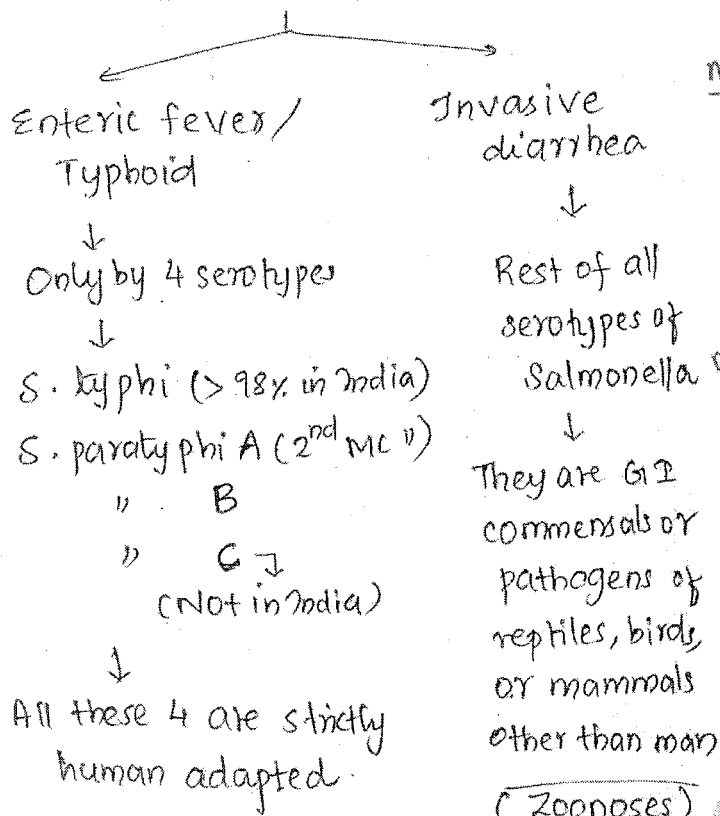 Enteric fever/
Typhoid
↓
Only by 4 serotypes
↓
S. typhi (> 98% in India)
S. paratyphi A (2nd MC ")
" B
" C ↴
(Not in India)
↓
All these 4 are strictly
human adapted.
Invasive
diarrhea
↓
Rest of all
serotypes of
Salmonella
↓
They are GI
commensals or
pathogens of
reptiles, birds,
or mammals
other than man
(Zoonoses)